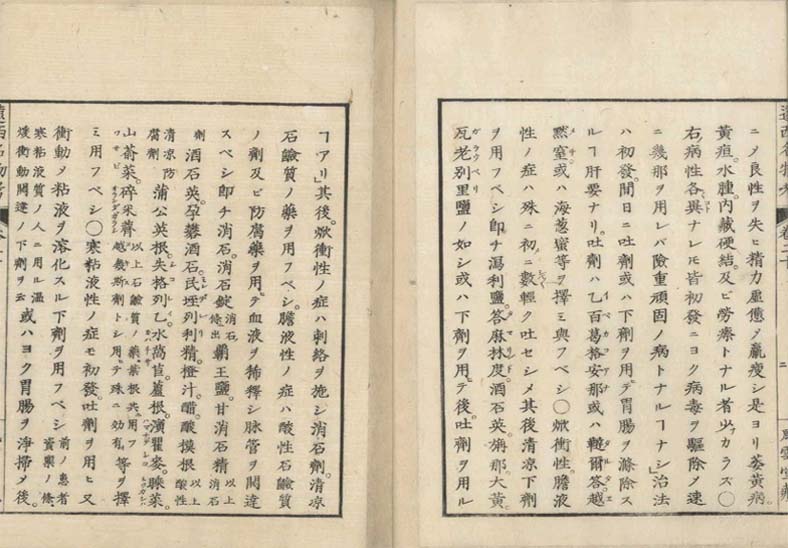 遠西名物考 卷二十 二
ニメ良性ヲ失ヒ精力虚憊メ羸瘦シ是ヨリ萎黄病。
黄疸。水腫。内臓硬結。及ヒ勞瘵トナル者少カラズ〇
右病性各異ナレモ皆初發ニヨク病毒ヲ驅除メ速
ニ幾那ヲ用レバ險重頑固ノ病トナルヿナシ」治法
ハ初發。間日ニ吐劑或ハ下劑ヲ用テ胃腸ヲ滌除ス
ルヿ肝要ナリ。吐劑ハ乙百葛格安那或ハ韃爾答越
黙室或ハ海蔥蜜等ヲ擇ミ與フベシ〇焮衝性。膽液
性ノ症ハ殊ニ初ニ數輕ク吐セシメ其後清凉下劑
ヲ用フベシ即チ瀉利鹽。答麻林度。酒石英。旃那。大黄。
瓦老別里鹽ノ如シ或ハ下劑ヲ用テ後。吐劑ヲ用ル
ヿアリ」其後。焮衝性ノ症ハ刺絡ヲ施シ消石劑。清凉
石鹸質ノ藥ヲ用フベシ。膽液性ノ症ハ酸性石鹸質
ノ劑及ヒ防腐藥ヲ用テ血液ヲ稀釋シ脉管ヲ開達
スベシ即チ消石。消石錠 消石條出 覇王鹽。甘消石精 以上消石
劑 酒石英。孕礬酒石。民垤列利精。橙汁。醋。酸模根 以上酸性
清凉防腐劑 蒲公英根。失格列乙。水萵苣。蘆根。濱瞿麥。睡菜。
山葵菜。碎米薺 以上石鹸質ノ藥葉根共ニ用フ越幾斯劑トシ用テ殊ニ効有 等ヲ擇
ミ用フベシ〇寒粘液性ノ症モ初發。吐劑ヲ用ヒ又
衝動メ粘液ヲ溶化スル下劑ヲ用フベシ 前ノ患者資藥ノ條
寒粘液質ノ人ニ用ル温煖衝動開達ノ下劑ヲ云 或ハヨク胃腸ヲ淨掃メ後。
遠西名物考